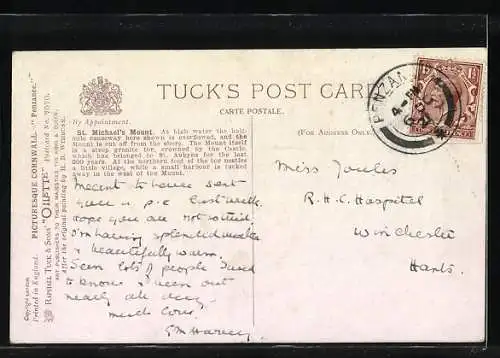 TUCK'S POST CARD
CARTE POSTALE.
(For Address Only.)
By Appointment.
St. Michael's Mount. At high water the half-
mile causeway here shown is overflowed, and the
Mount is cut off from the shore. The Mount itself
is a steep granite tor, crowned by the Castle,
which has belonged to St. Aubyns for the last
200 years. At the northern foot of the tor nestles
a little village, while a small harbour is tucked
away in the west of the Mount.
Meant to have sent
you a p.c. last week.
Hope you are not
I'm having splendid
& beautifully warm.
Seen lots of people I used
to know & been out
nearly all day.
much love.
GM Harvey
Miss Joules
R.H.C. Hospital
Winchester
Hants.
PENZANCE
4-PM
Copyright
Printed in England.
PICTURESQUE CORNWALL "Penzance."
RAPHAEL TUCK & SONS' "OILETTE"
ART PUBLISHERS TO THEIR MAJESTIES THE KING & QUEEN.
After the original painting by H. B. WIMBUSH.